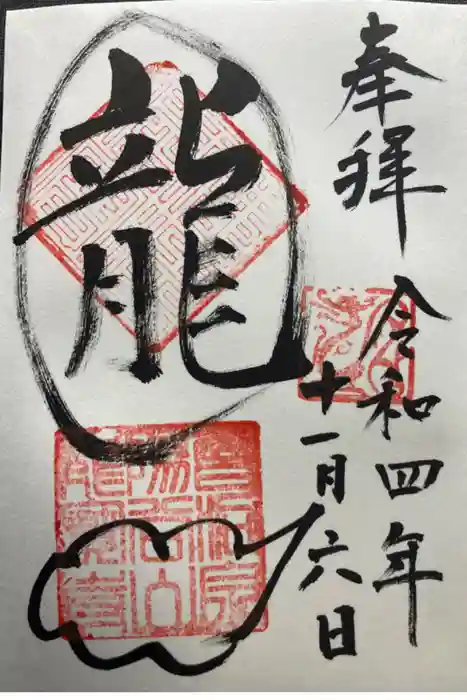 奉拝
令和四年
十一月六日
龍